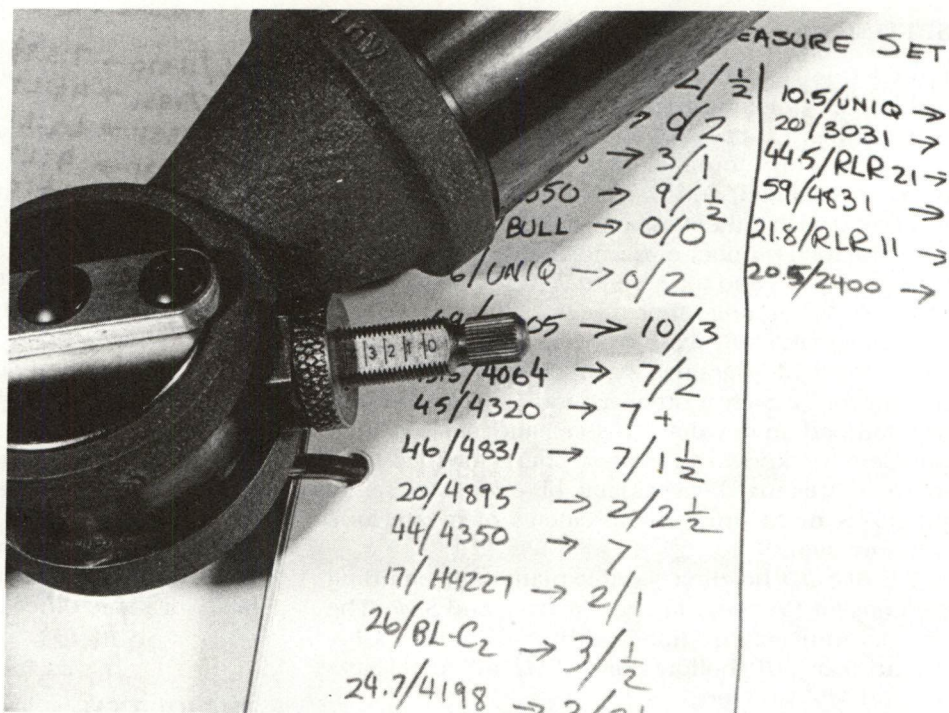 EASURE SET
2/½
→ 0/2
→ 3/1
→ 9/½
BULL → 0/0
6/UNIQ → 0/2
→ 10/3
/4064 → 7/2
45/4320 → 7+
46/4831 → 7/1½
20/4895 → 2/2½
44/4350 → 7
17/H4227 → 2/1
26/BL-C2 → 3/½
24.7/4198 →
10.5/UNIQ →
20/3031 →
44.5/RLR 21→
59/4831 →
21.8/RLR 11 →
20.5/2400 →
3 2 1 0